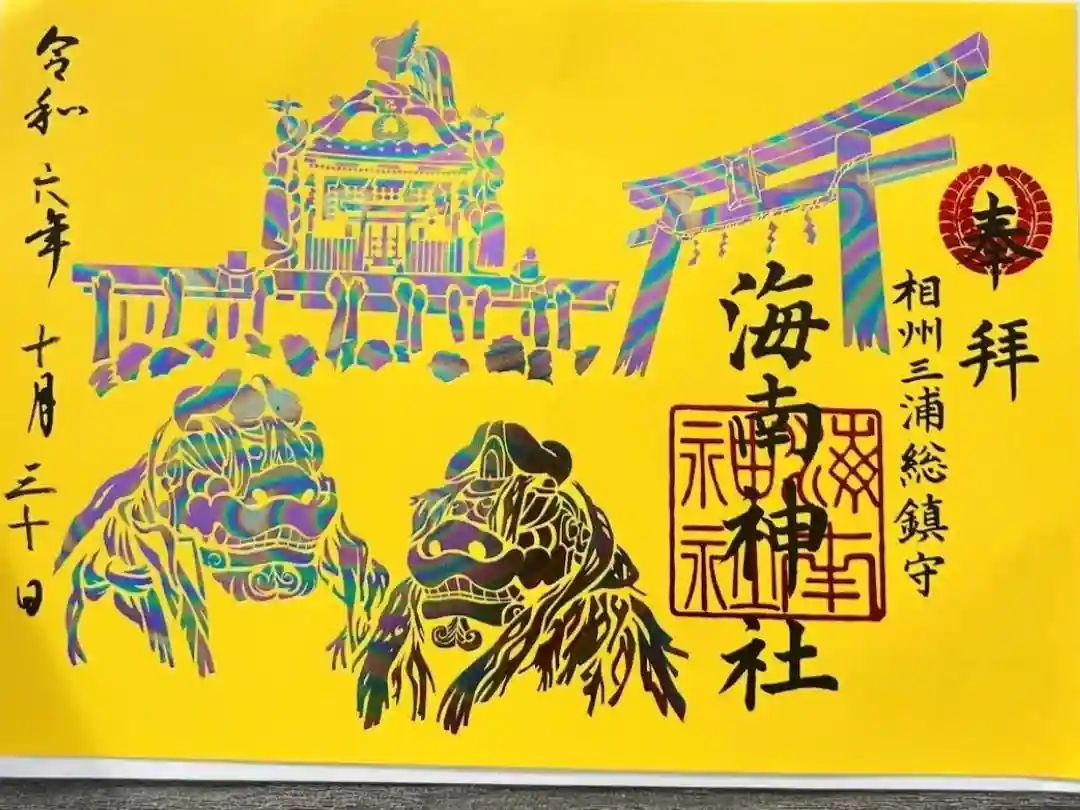 奉拝
相州三浦総鎮守
海南神社
海南神社
令和六年十月三十日